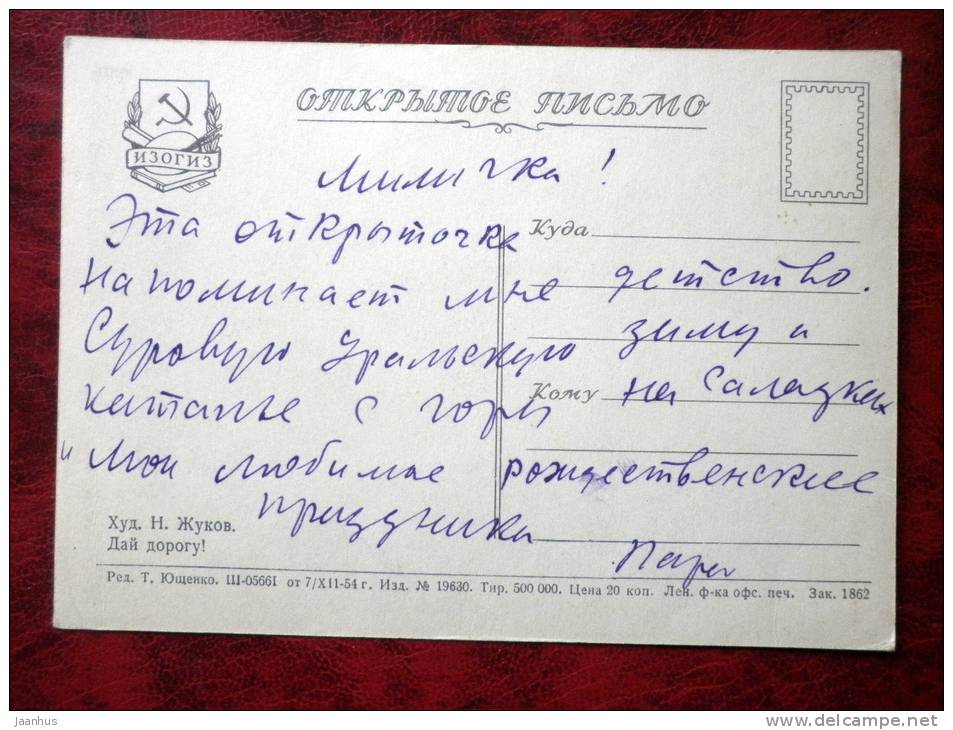 ОТКРЫТОЕ ПИСЬМО
ИЗОГИЗ
Миличка!
Эта открыточка
напоминает мне детство.
Суровую Уральскую зиму и
катанье с горы на салазках
и мои любимые рождественские
праздника
Куда
Кому
Худ. Н. Жуков.
Дай дорогу!
Ред. Т. Ющенко. Ш-05661 от 7/XII-54 г. Изд. № 19630. Тир. 500 000. Цена 20 коп. Лен. ф-ка офс. печ. Зак. 1862
jaanhus
www.delcampe.net